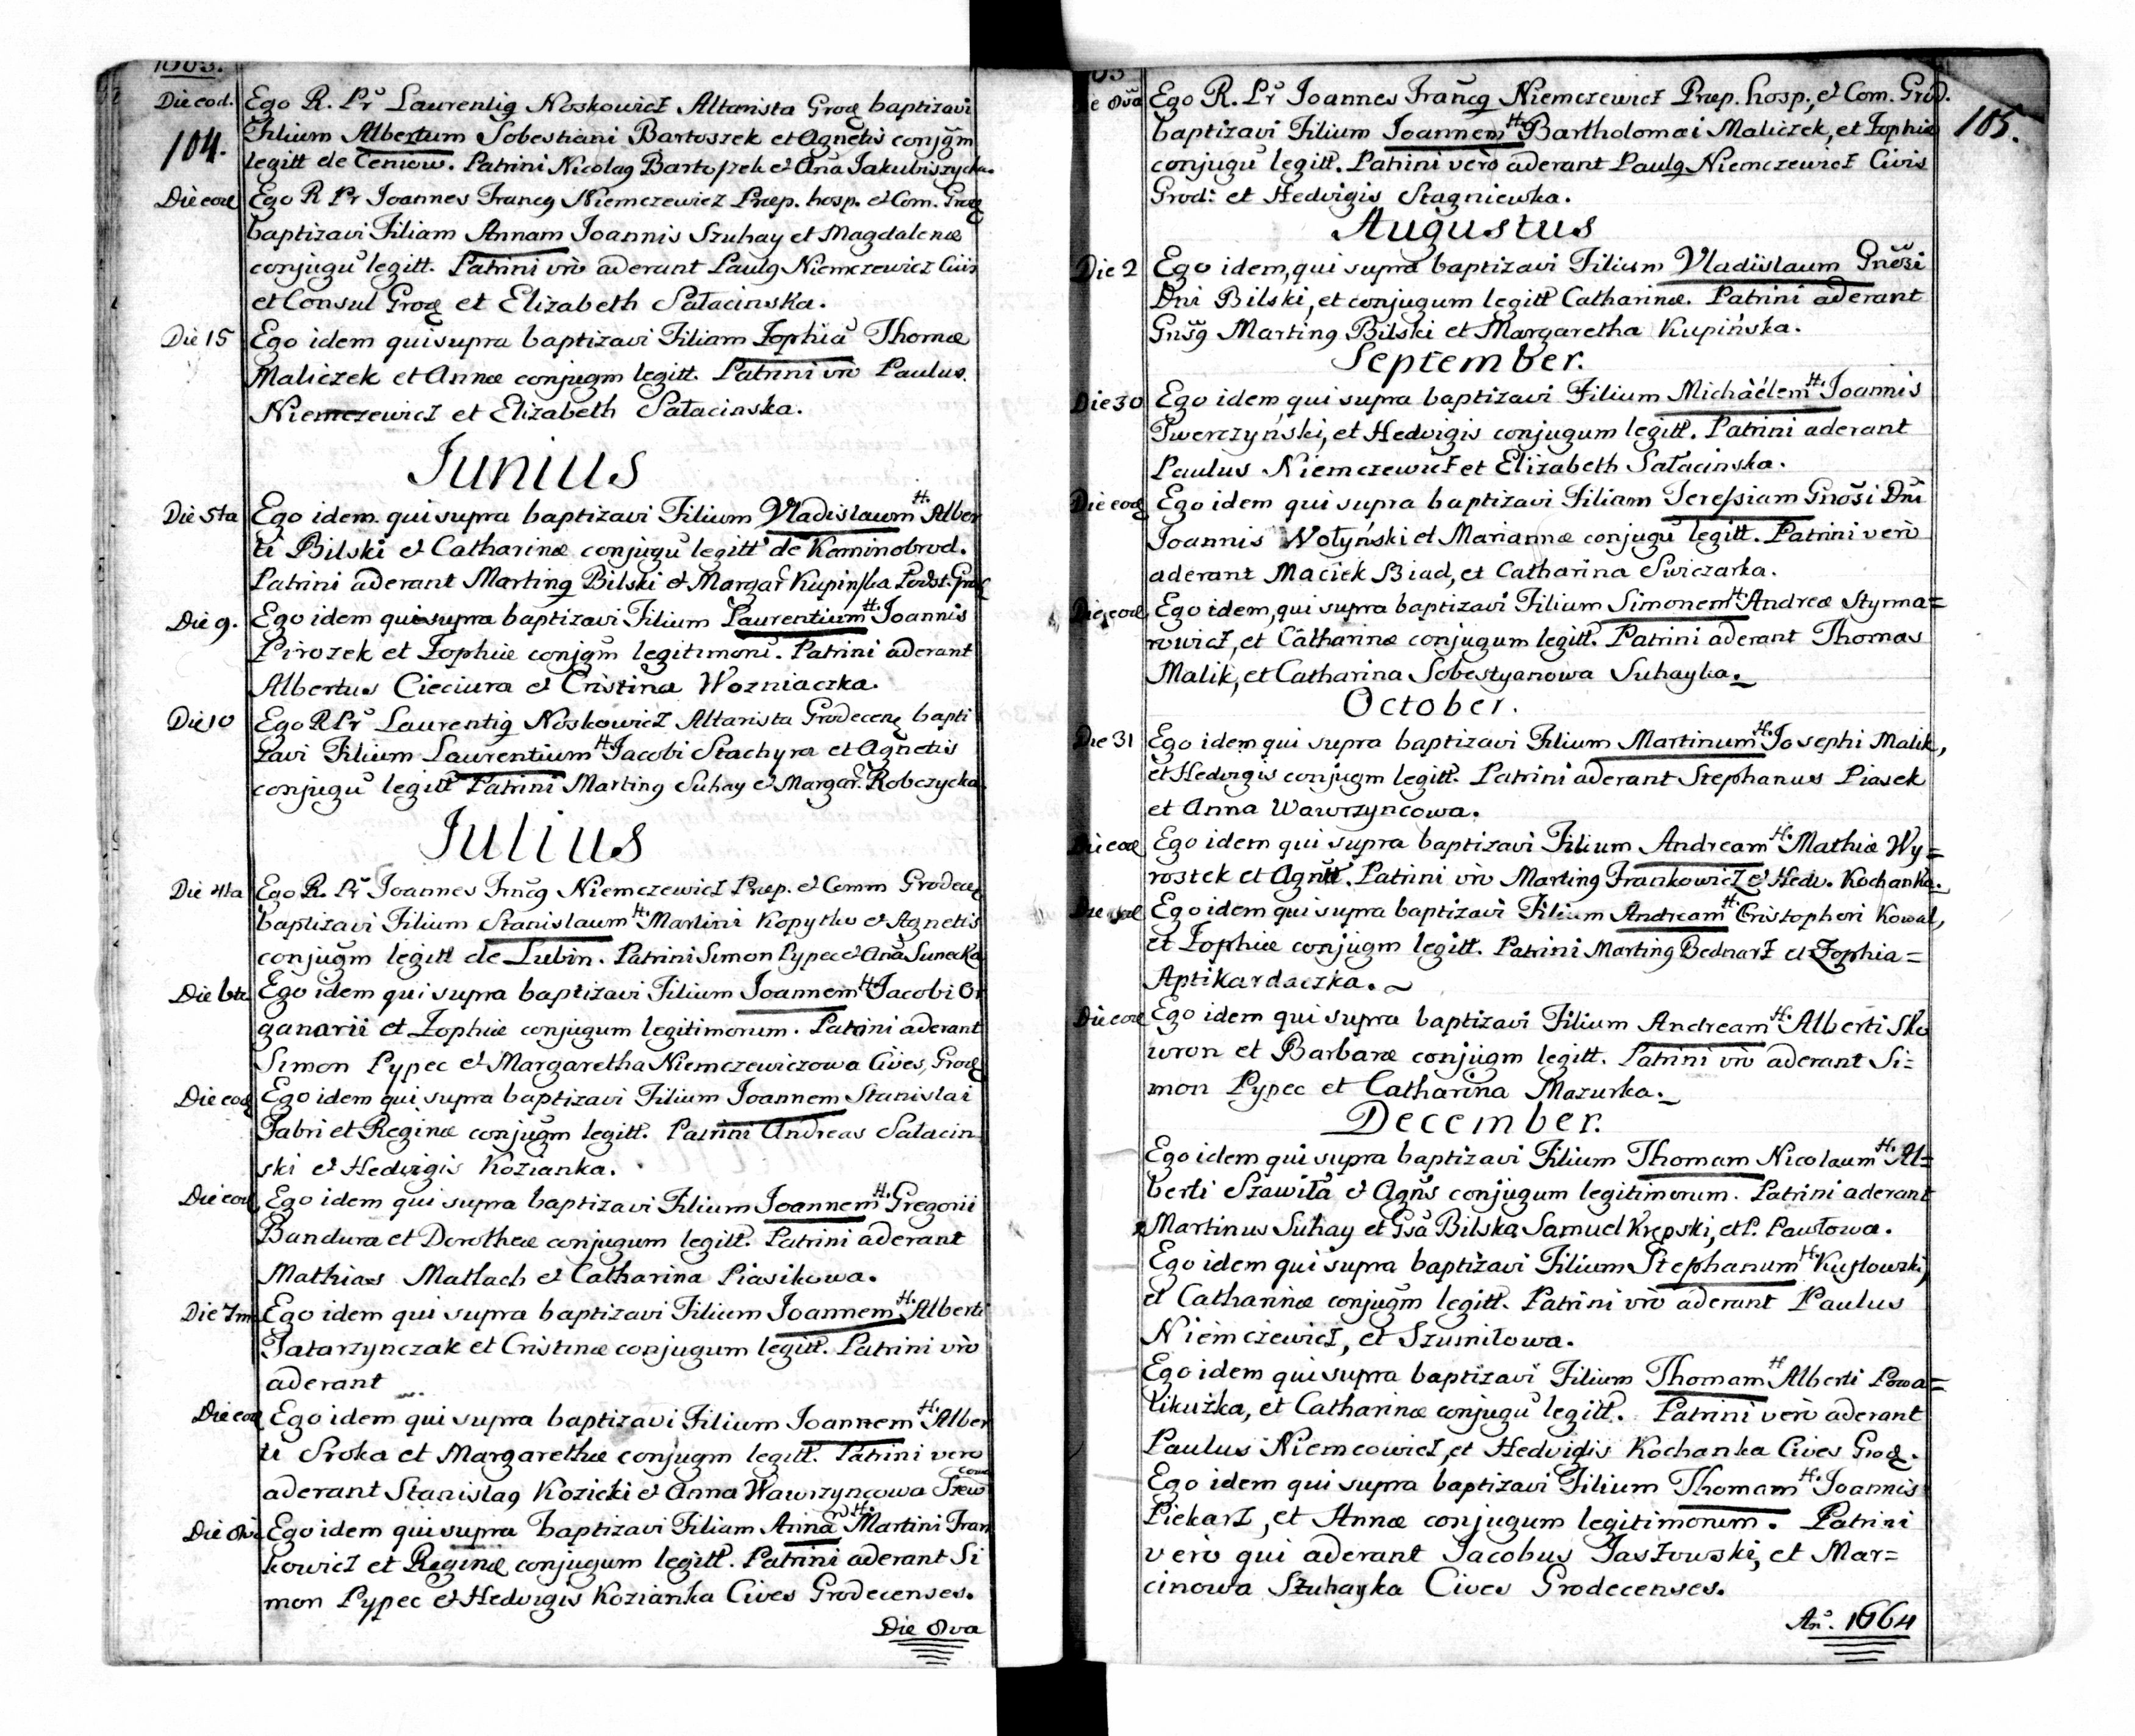 1663.
Die eod. Ego R. Pr Laurentig Noskowicz Altarista Grod baptizavi
104. Filium Albertum Sobestiani Bartoszek et Agnetis conjgm
legitt de Ceniow. Patrini Nicolag Bartoszek et Ana Jakubiszycka.
Die eod Ego R Pr Joannes Francg Niemczewicz Præp. hosp. et Com. Grod
baptizavi Filiam Annam Joannis Szuhay et Magdalenæ
conjugu legitt. Patrini vro aderant Paulg Niemczewicz Civis
et Consul Grod et Elizabeth Sałacinska.
Die 15 Ego idem qui supra baptizavi Filiam Zophia Thomæ
Maliczek et Annæ conjugm legitt. Patrini vro Paulus
Niemczewicz et Elizabeth Sałacinska.
Junius
Die 5ta Ego idem qui supra baptizavi Filium Vladislaum H. Alber
ti Bilski et Catharinæ conjugu legitt de Kaminobrod.
Patrini aderant Marting Bilski et Margar Kupinska
Die 9. Ego idem qui supra baptizavi Filium Laurentium H. Joannis
Pirozek et Zophiæ conjgm legitimoru. Patrini aderant
Albertus Cieciura et Cristina Wozniaczka.
Die 10 Ego R Pr Laurentig Noskowicz Altarista Grodecens bapti
zavi Filium Laurentium H. Jacobi Stachyra et Agnetis
conjugu legitt Patrini Marting Suhay et Margar. Robczycka.
Julius
Die 4ta Ego R. Pr Joannes Frncg Niemczewicz Præp. et Comm Grodece
baptizavi Filium Stanislaum H. Martini Kopytko et Agnetis
conjugm legitt de Lubin. Patrini Simon Pypec et Ana Sunecka
Die 6ta Ego idem qui supra baptizavi Filium Joannem H. Jacobi Or
ganarii et Zophiæ conjugum legitimorum. Patrini aderant
Simon Pypec et Margaretha Niemczewiczowa Cives, Grod
Die eod Ego idem qui supra baptizavi Filium Joannem Stanislai
Fabri et Reginæ conjugm legitt. Patrini Andreas Sałacin
ski et Hedvigis Kozianka.
Die eod Ego idem qui supra baptizavi Filium Joannem H. Gregorii
Bandura et Dorotheæ conjugum legitt. Patrini aderant
Mathias Matłach et Catharina Piasikowa.
Die 7m Ego idem qui supra baptizavi Filium Joannem H. Alberti
Tatarzynczak et Cristinæ conjugum legitt. Patrini vro
aderant
Die eod Ego idem qui supra baptizavi Filium Joannem H. Alber
ti Sroka et Margarethæ conjugm legitt. Patrini vero
aderant Stanislag Kozicki et Anna Wawrzyncowa Szew
cowa
Die 8va Ego idem qui supra baptizavi Filiam Anna H. Martini Fran
kowicz et Reginæ conjugum legitt. Patrini aderant Si
mon Pypec et Hedvigis Kozianka Cives Grodecenses.
Die 8va
63
Die 8va Ego R. Pr Joannes Francg Niemczewicz Præp. hosp., et Com. Grod.
baptizavi Filium Joannem H. Bartholomæi Maliczek, et Zophiæ 105.
conjugu legitt. Patrini vero aderant Paulg Niemczewicz Civis
Grod: et Hedvigis Stagniewka.
Augustus
Die 2 Ego idem, qui supra baptizavi Filium Vladislaum Gnosi
Dni Bilski, et conjugum legitt Catharinæ. Patrini aderant
Gnsg Marting Bilski et Margaretha Kupińska.
September.
Die 30 Ego idem qui supra baptizavi Filium Michaëlem H. Joannis
Twerczyński, et Hedvigis conjugum legitt. Patrini aderant
Paulus Niemczewicz et Elizabeth Sałacinska.
Die eod Ego idem qui supra baptizavi Filiam Teressiam Gnosi Dni
Joannis Wołyński et Mariannæ conjugu legitt. Patrini vero
aderant Maciek Biad, et Catharina Swiczarka.
Die eod Ego idem, qui supra baptizavi Filium Simonem H. Andreæ Styrma=
rowicz, et Catharinæ conjugum legitt. Patrini aderant Thomas
Malik, et Catharina Sobestyanowa Suhayka.
October.
Die 31 Ego idem qui supra baptizavi Filium Martinum H. Josephi Malik,
et Hedvigis conjugm legitt. Patrini aderant Stephanus Piasek
et Anna Wawrzyncowa.
Die eod Ego idem qui supra baptizavi Filium Andream H. Mathiæ Wy=
rostek et Agntt. Patrini vro Marting Frankowicz et Hedv. Kochanka.
Die eod Ego idem qui supra baptizavi Filium Andream H. Cristopheri Kowal,
et Zophiæ conjugm legitt. Patrini Marting Bednarz et Zophia=
Aptikardaczka.
Die eod Ego idem qui supra baptizavi Filium Andream H. Alberti Sko
wron et Barbaræ conjugm legitt. Patrini vro aderant Si=
mon Pypec et Catharina Mazurka.
December.
Ego idem qui supra baptizavi Filium Thomam Nicolaum H. Al=
berti Szawiła et Agns conjugum legitimorum. Patrini aderant
Martinus Suhay et Gsa Bilska Samuel Krepski, et P. Pawłowa.
Ego idem qui supra baptizavi Filium Stephanum H. Kuszłowski,
et Catharinæ conjugm legitt. Patrini vro aderant Paulus
Niemczewicz, et Szumiłowa.
Ego idem qui supra baptizavi Filium Thomam H Alberti Powa=
likużka, et Catharinæ conjugu legitt. Patrini vero aderant
Paulus Niemcowicz, et Hedvigis Kochanka Cives Grod.
Ego idem qui supra baptizavi Filium Thomam H. Joannis
Piekarz, et Annæ conjugum legitimorum. Patrini
vero qui aderant Jacobus Jaszowski, et Mar=
cinowa Szuhayka Cives Grodecenses.
An. 1664